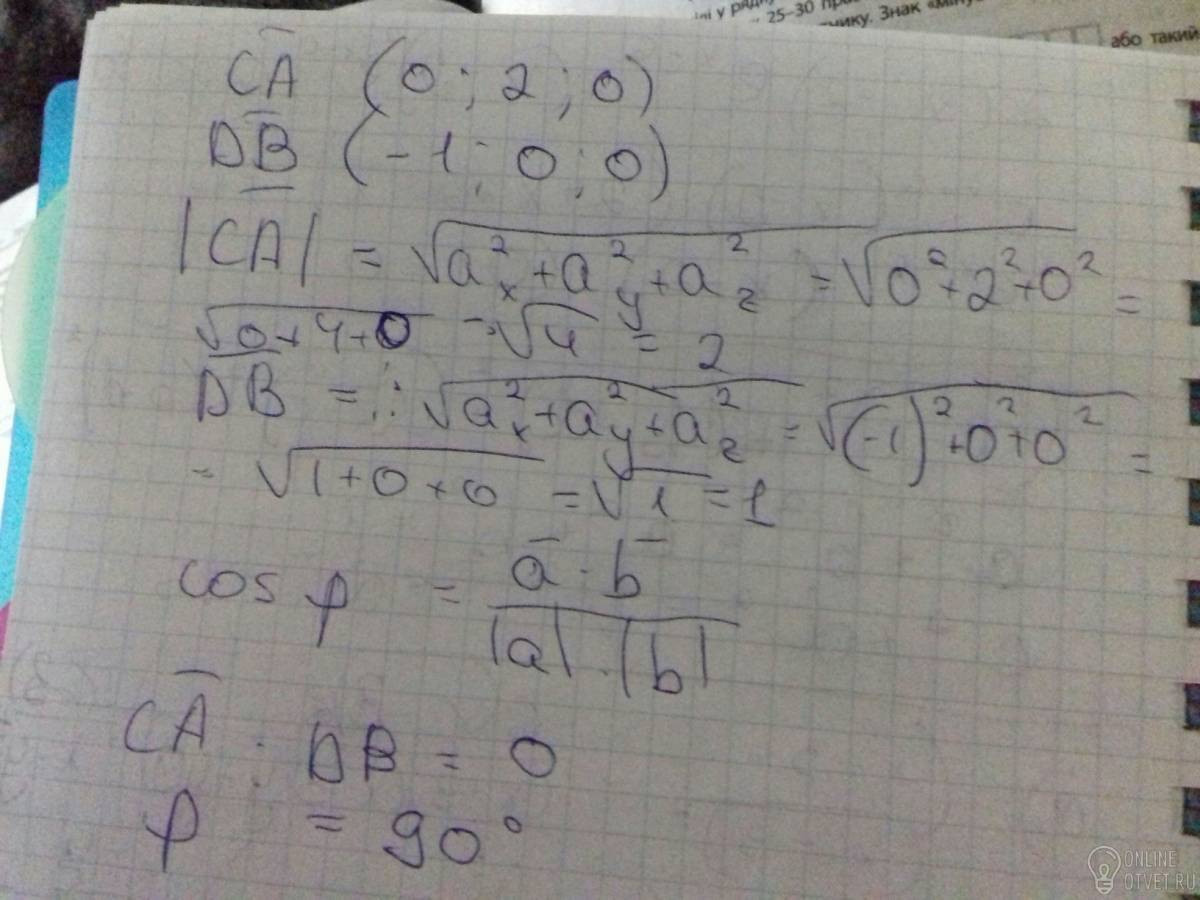 ні у ряд
25–30 пра
нику. Знак «міну
або такий
CA (0 ; 2 ; 0)
DB (-1 ; 0 ; 0)
|CA| = √a²x + a²y + a²z = √0² + 2² + 0² =
√0+4+0 = √4 = 2
DB = √a²x + a²y + a²z = √(-1)² + 0² + 0² =
= √1+0+0 = √1 = 1
cos φ = a · b / |a| · |b|
CA · DB = 0
φ = 90°
ONLINE
OTVET.RU